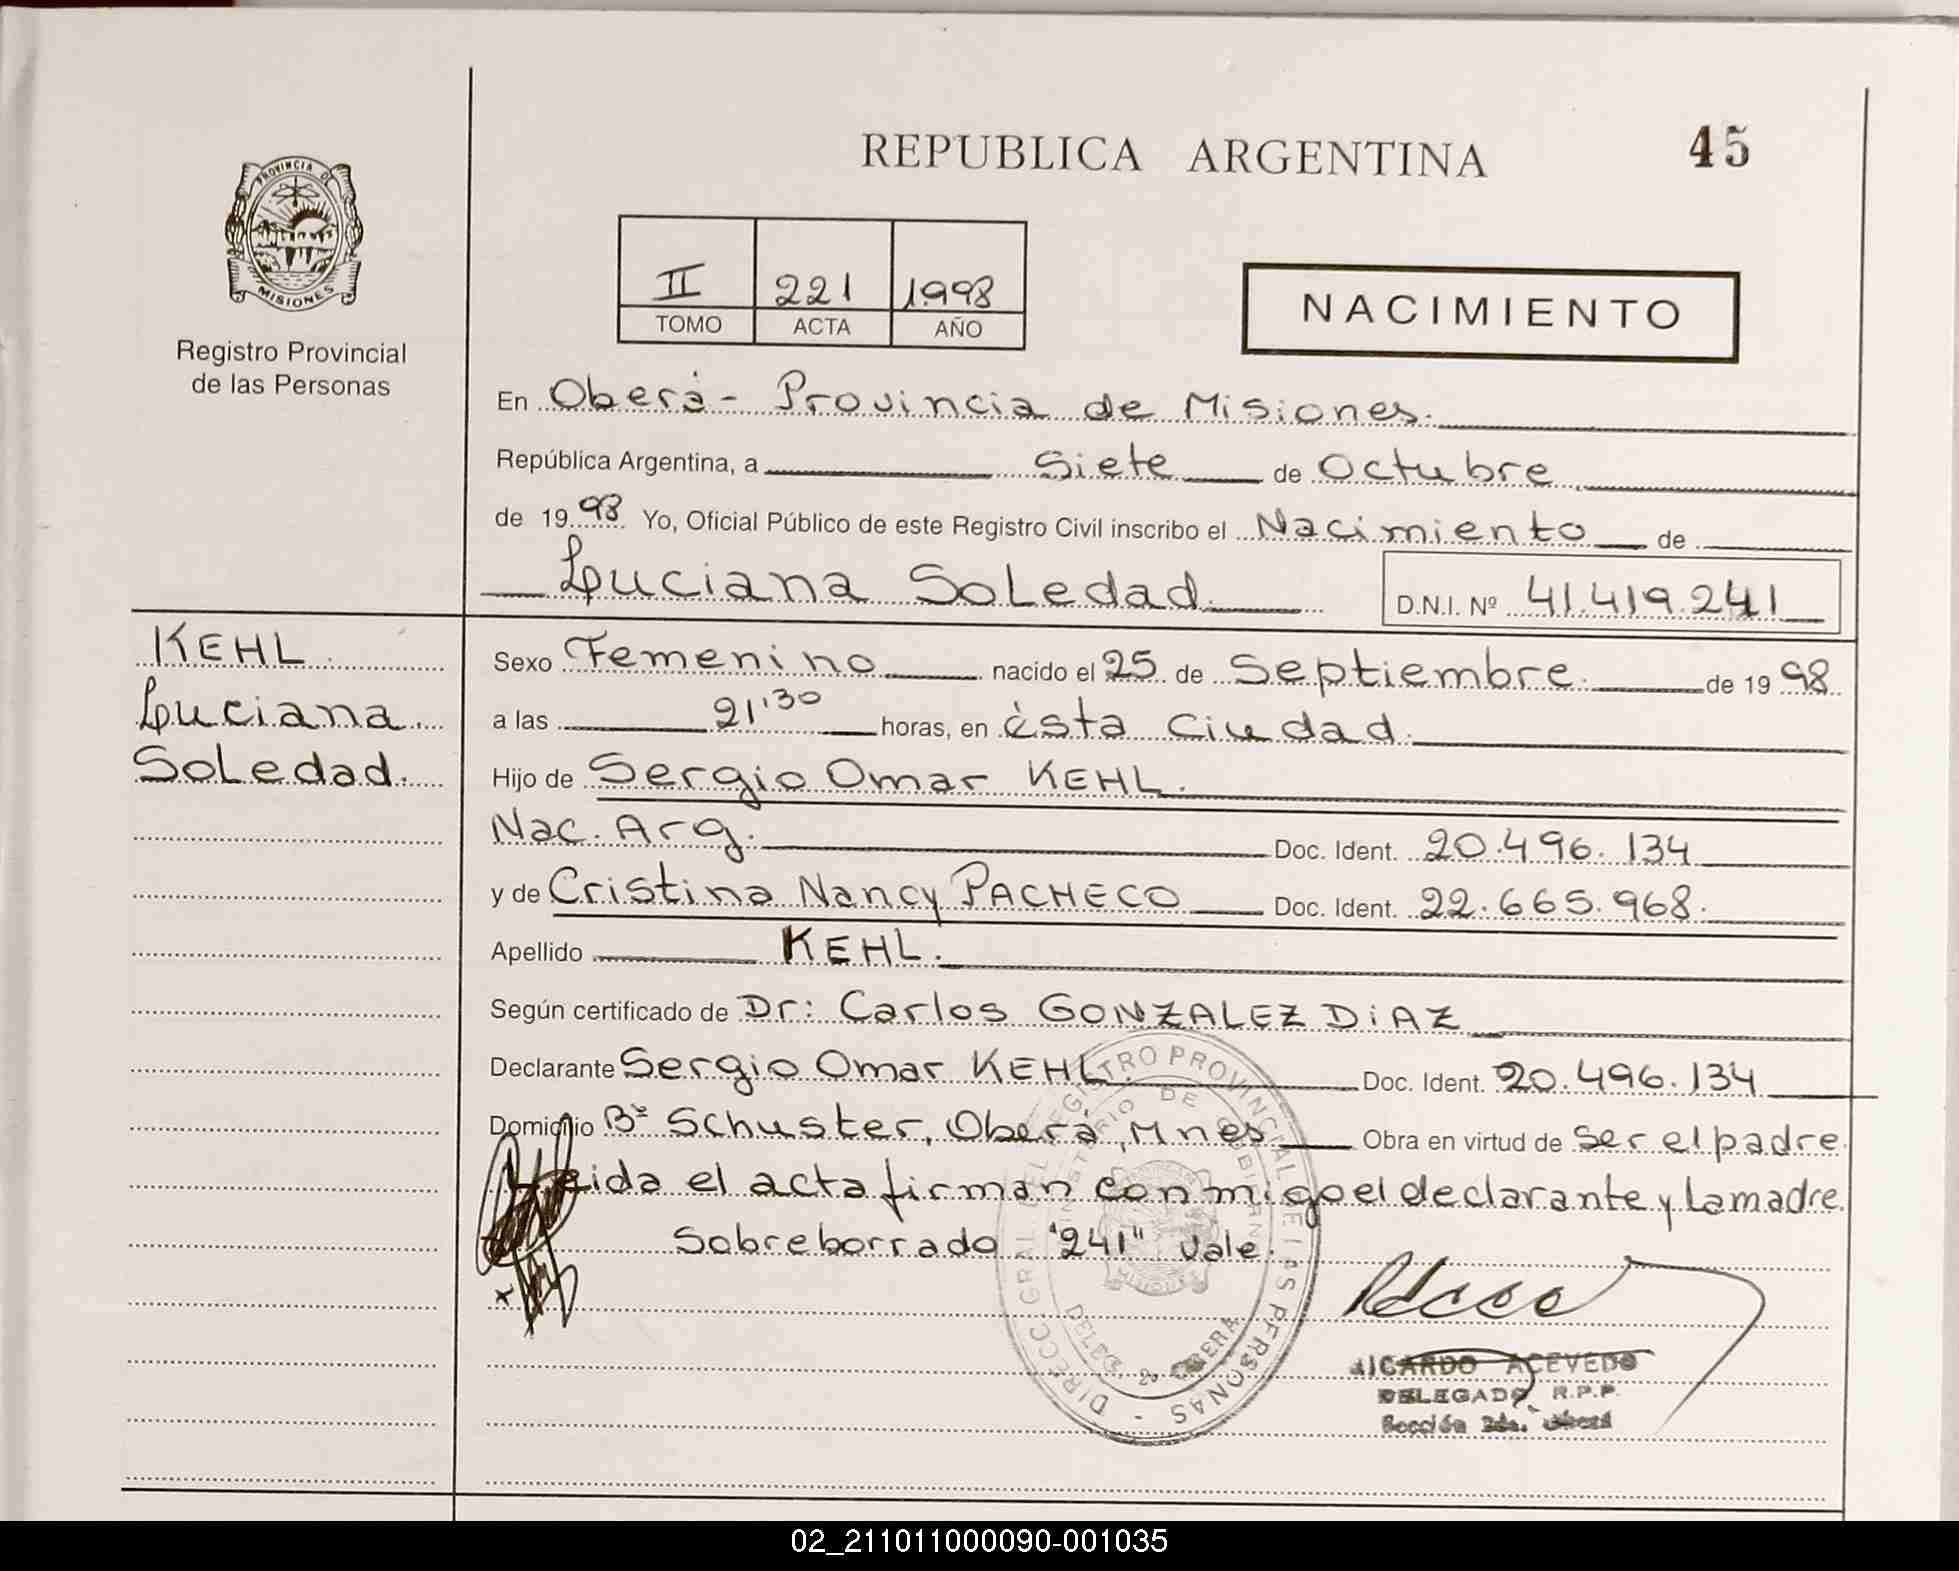 REPUBLICA ARGENTINA
45
PROVINCIA DE
MISIONES
Registro Provincial
de las Personas
II 221 1998
TOMO ACTA AÑO
NACIMIENTO
En Oberá - Provincia de Misiones.
República Argentina, a Siete de Octubre
de 1998 Yo, Oficial Público de este Registro Civil inscribo el Nacimiento de
Luciana Soledad. D.N.I. Nº 41.419.241
KEHL
Luciana
Soledad.
Sexo Femenino nacido el 25 de Septiembre. de 1998
a las 21'30 horas, en ésta Ciudad.
Hijo de Sergio Omar KEHL.
Nac. Arg. Doc. Ident. 20.496.134
y de Cristina Nancy PACHECO Doc. Ident. 22.665.968.
Apellido KEHL.
Según certificado de Dr: Carlos GONZALEZ DiAZ
Declarante Sergio Omar KEHL. Doc. Ident. 20.496.134
Domicilio Bº Schuster, Oberá, Mnes Obra en virtud de ser el padre.
Leida el acta firman conmigo el declarante y la madre.
Sobreborrado "241" vale.
DIRECC GRAL DEL REGISTRO PROVINCIAL DE LAS PERSONAS
MINISTERIO DE GOBIERNO
MISIONES
OBERA
RICARDO ACEVEDO
DELEGADO R.P.P.
Sección 2da. Oberá
02_211011000090-001035